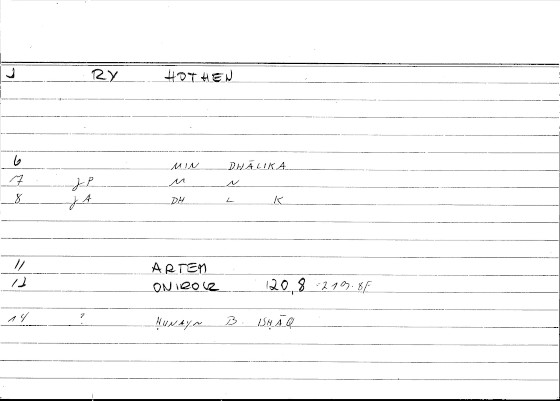 1 RY HOTHEN
6 MIN DHĀLIKA
7 JP M N
8 JA DH L K
11 ARTEM
12 ONIROCR 120,8 -219.8f
14 ? ḤUNAYN B. ISḤĀQ